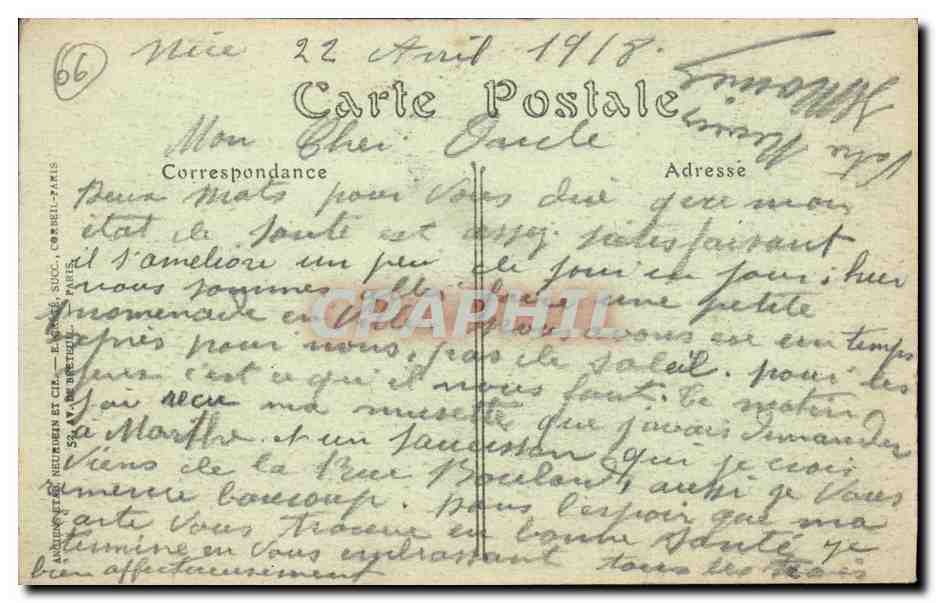 66
Nice 22 Avril 1918.
Carte Postale
Mon Cher Oncle
Correspondance
Adresse
Deux mots pour vous dire que mon
état de santé est assez satisfaisant
il s'ameliore un peu de jour en jour, hier
nous sommes allés faire une petite
promenade en ville nous avons eu un temps
après pour nous, pas de soleil. pour les
yeux c'est ce qu'il nous faut. Ce matin
j'ai reçu ma musette que j'avais demander
a Marthe et un saucisson qui je crois
viens de la Rue Boulard, aussi je vous
remercie baucoup. Dans l'espoir que ma
carte vous trouve en bonne santé je
termine en vous embrassant tous les trois
bien affectueusement
Votre Neveu
ANCIENS ETAB. NEURDEIN ET CIE. — E. CRÉTÉ, SUCC., CORBEIL-PARIS
52, AV. DE BRETEUIL. PARIS.
CPAPHIL